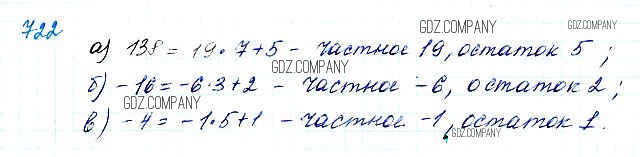 722
GDZ.COMPANY
а) 138 = 19·7+5 - частное 19, остаток 5 ;
GDZ.COMPANY
б) -16 = -6·3+2 - частное -6, остаток 2 ;
GDZ.COMPANY
в) -4 = -1·5+1 - частное -1, остаток 1.
GDZ.COMPANY